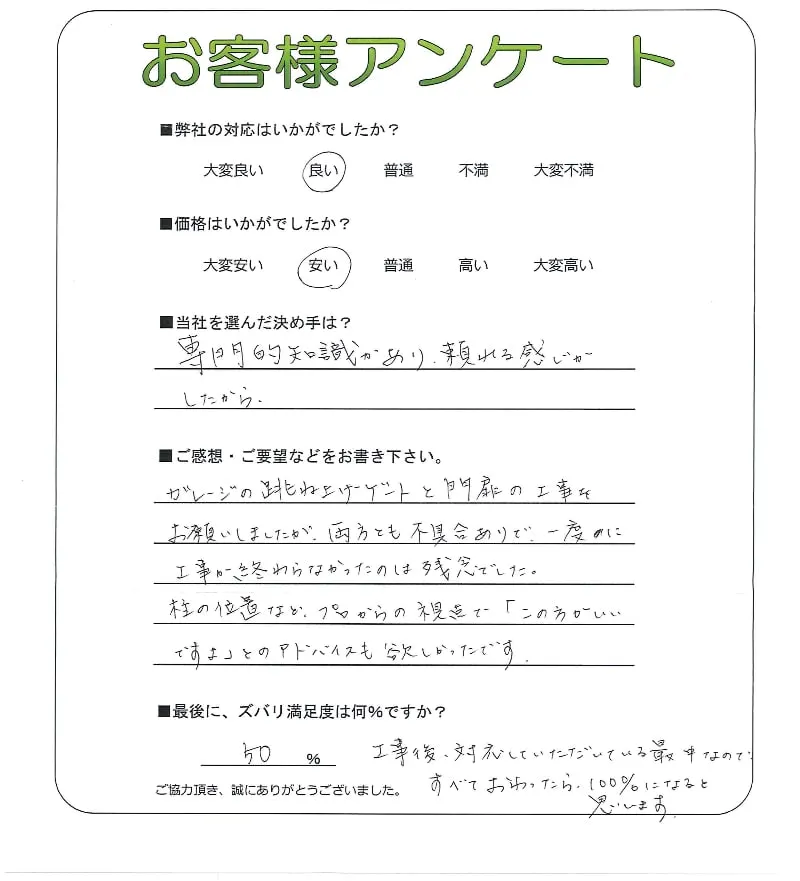 お客様アンケート
■弊社の対応はいかがでしたか？
大変良い 良い 普通 不満 大変不満
■価格はいかがでしたか？
大変安い 安い 普通 高い 大変高い
■当社を選んだ決め手は？
専門的知識があり、頼れる感じが
したから。
■ご感想・ご要望などをお書き下さい。
ガレージの跳ね上げゲートと門扉の工事を
お願いしましたが、両方とも不具合ありで、一度めに
工事が終わらなかったのは残念でした。
柱の位置など、プロからの視点で「この方がいい
ですよ」とのアドバイスも欲しかったです。
■最後に、ズバリ満足度は何％ですか？
50 ％ 工事後、対応していただいている最中なので、
すべておわったら、100％になると
思います。
ご協力頂き、誠にありがとうございました。